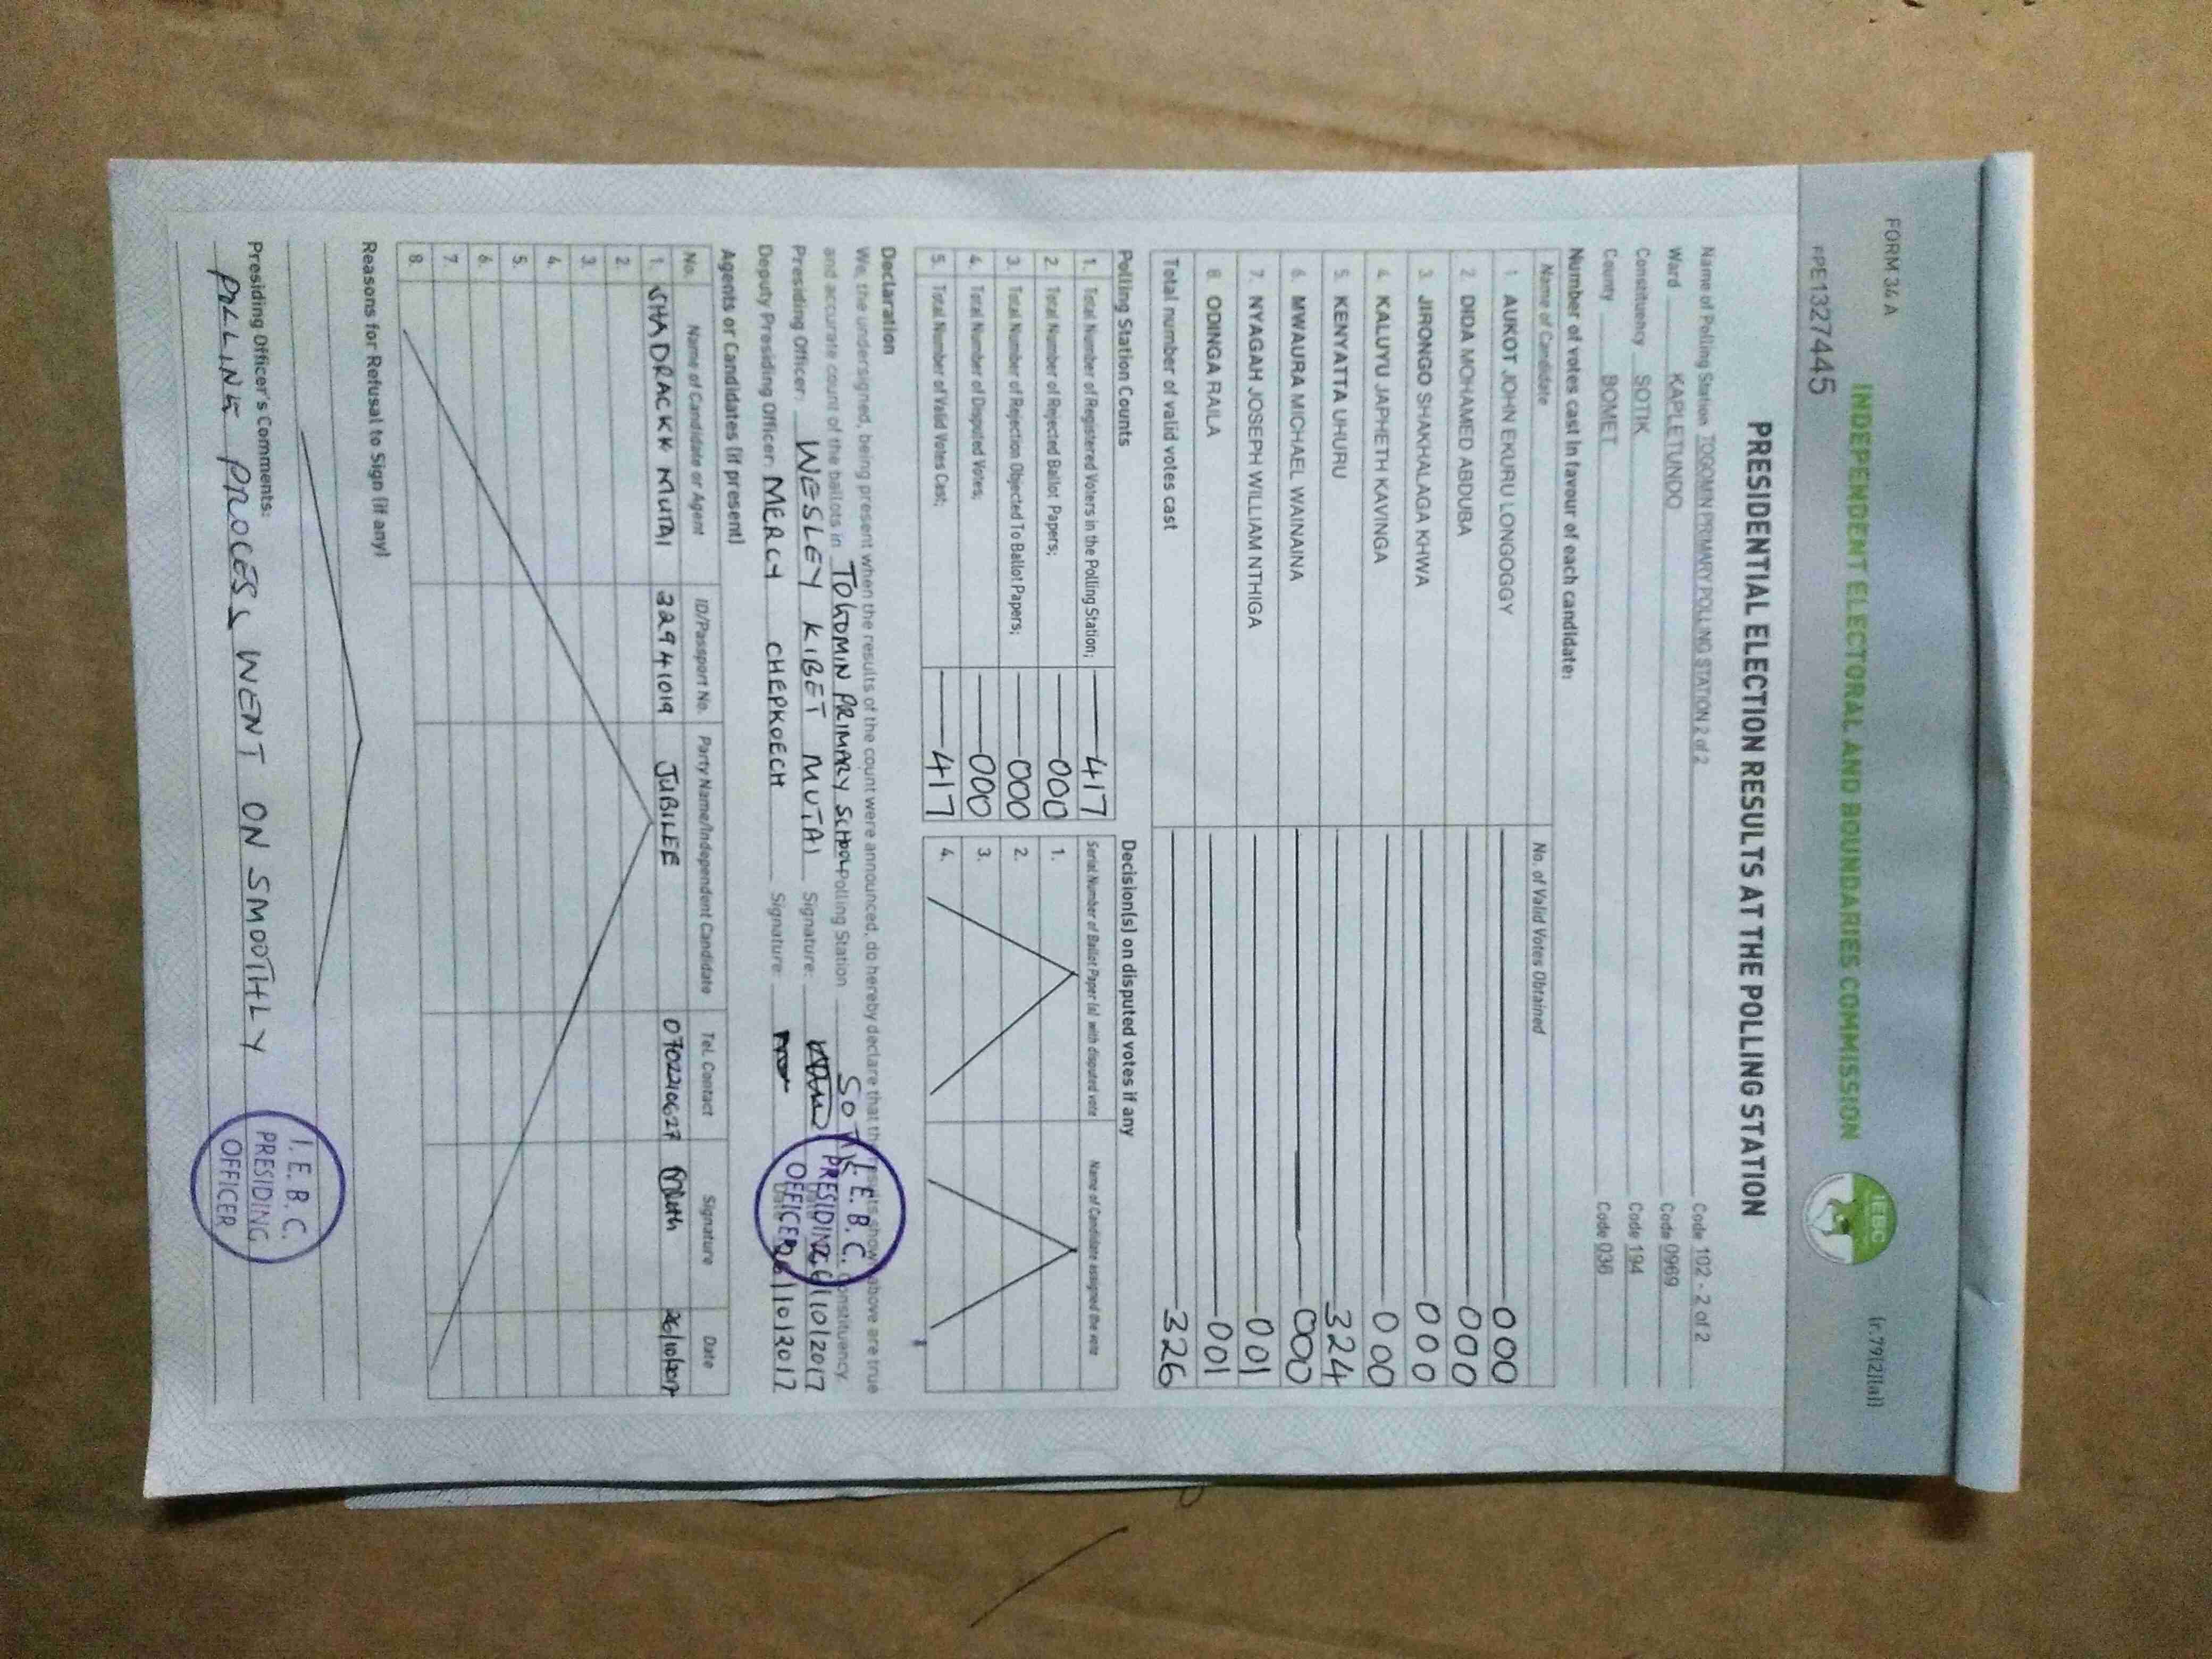 FORM 34 A
INDEPENDENT ELECTORAL AND BOUNDARIES COMMISSION
IEBC
(r.79(2)(a))
PPE1327445
PRESIDENTIAL ELECTION RESULTS AT THE POLLING STATION
Name of Polling Station TOGOMIN PRIMARY POLLING STATION 2 of 2 Code 102 - 2 of 2
Ward KAPLETUNDO Code 0969
Constituency SOTIK Code 194
County BOMET Code 036
Number of votes cast in favour of each candidate:
Name of Candidate No. of Valid Votes Obtained
1 AUKOT JOHN EKURU LONGOGGY 000
2 DIDA MOHAMED ABDUBA 000
3 JIRONGO SHAKHALAGA KHWA 000
4 KALUYU JAPHETH KAVINGA 000
5 KENYATTA UHURU 324
6 MWAURA MICHAEL WAINAINA 000
7. NYAGAH JOSEPH WILLIAM NTHIGA 001
8 ODINGA RAILA 001
Total number of valid votes cast 326
Polling Station Counts
1. Total Number of Registered Voters in the Polling Station; 417
2. Total Number of Rejected Ballot Papers; 000
3. Total Number of Rejection Objected To Ballot Papers; 000
4. Total Number of Disputed Votes; 000
5. Total Number of Valid Votes Cast; 417
Decision(s) on disputed votes if any
Serial Number of Ballot Paper (s) with disputed vote Name of Candidate assigned the vote
1.
2.
3.
4.
Declaration
We, the undersigned, being present when the results of the count were announced, do hereby declare that the results shown above are true
and accurate count of the ballots in TOGOMIN PRIMARY SCHOOL Polling Station SOTIK Constituency
Presiding Officer: WESLEY KIBET MUTAI Signature: Date 26/10/2017
Deputy Presiding Officer: MERCY CHEPKOECH Signature: Date 26/10/2017
I. E. B. C.
PRESIDING
OFFICER
Agents or Candidates (if present)
No. Name of Candidate or Agent ID/Passport No. Party Name/Independent Candidate Tel. Contact Signature Date
1. SHADRACKK MUTAI 32941019 JUBILEE 0702210627 26/10/2017
2.
3.
4.
5.
6.
7.
8.
Reasons for Refusal to Sign (if any)
Presiding Officer's Comments:
POLLING PROCESS WENT ON SMOOTHLY
I. E. B. C.
PRESIDING
OFFICER